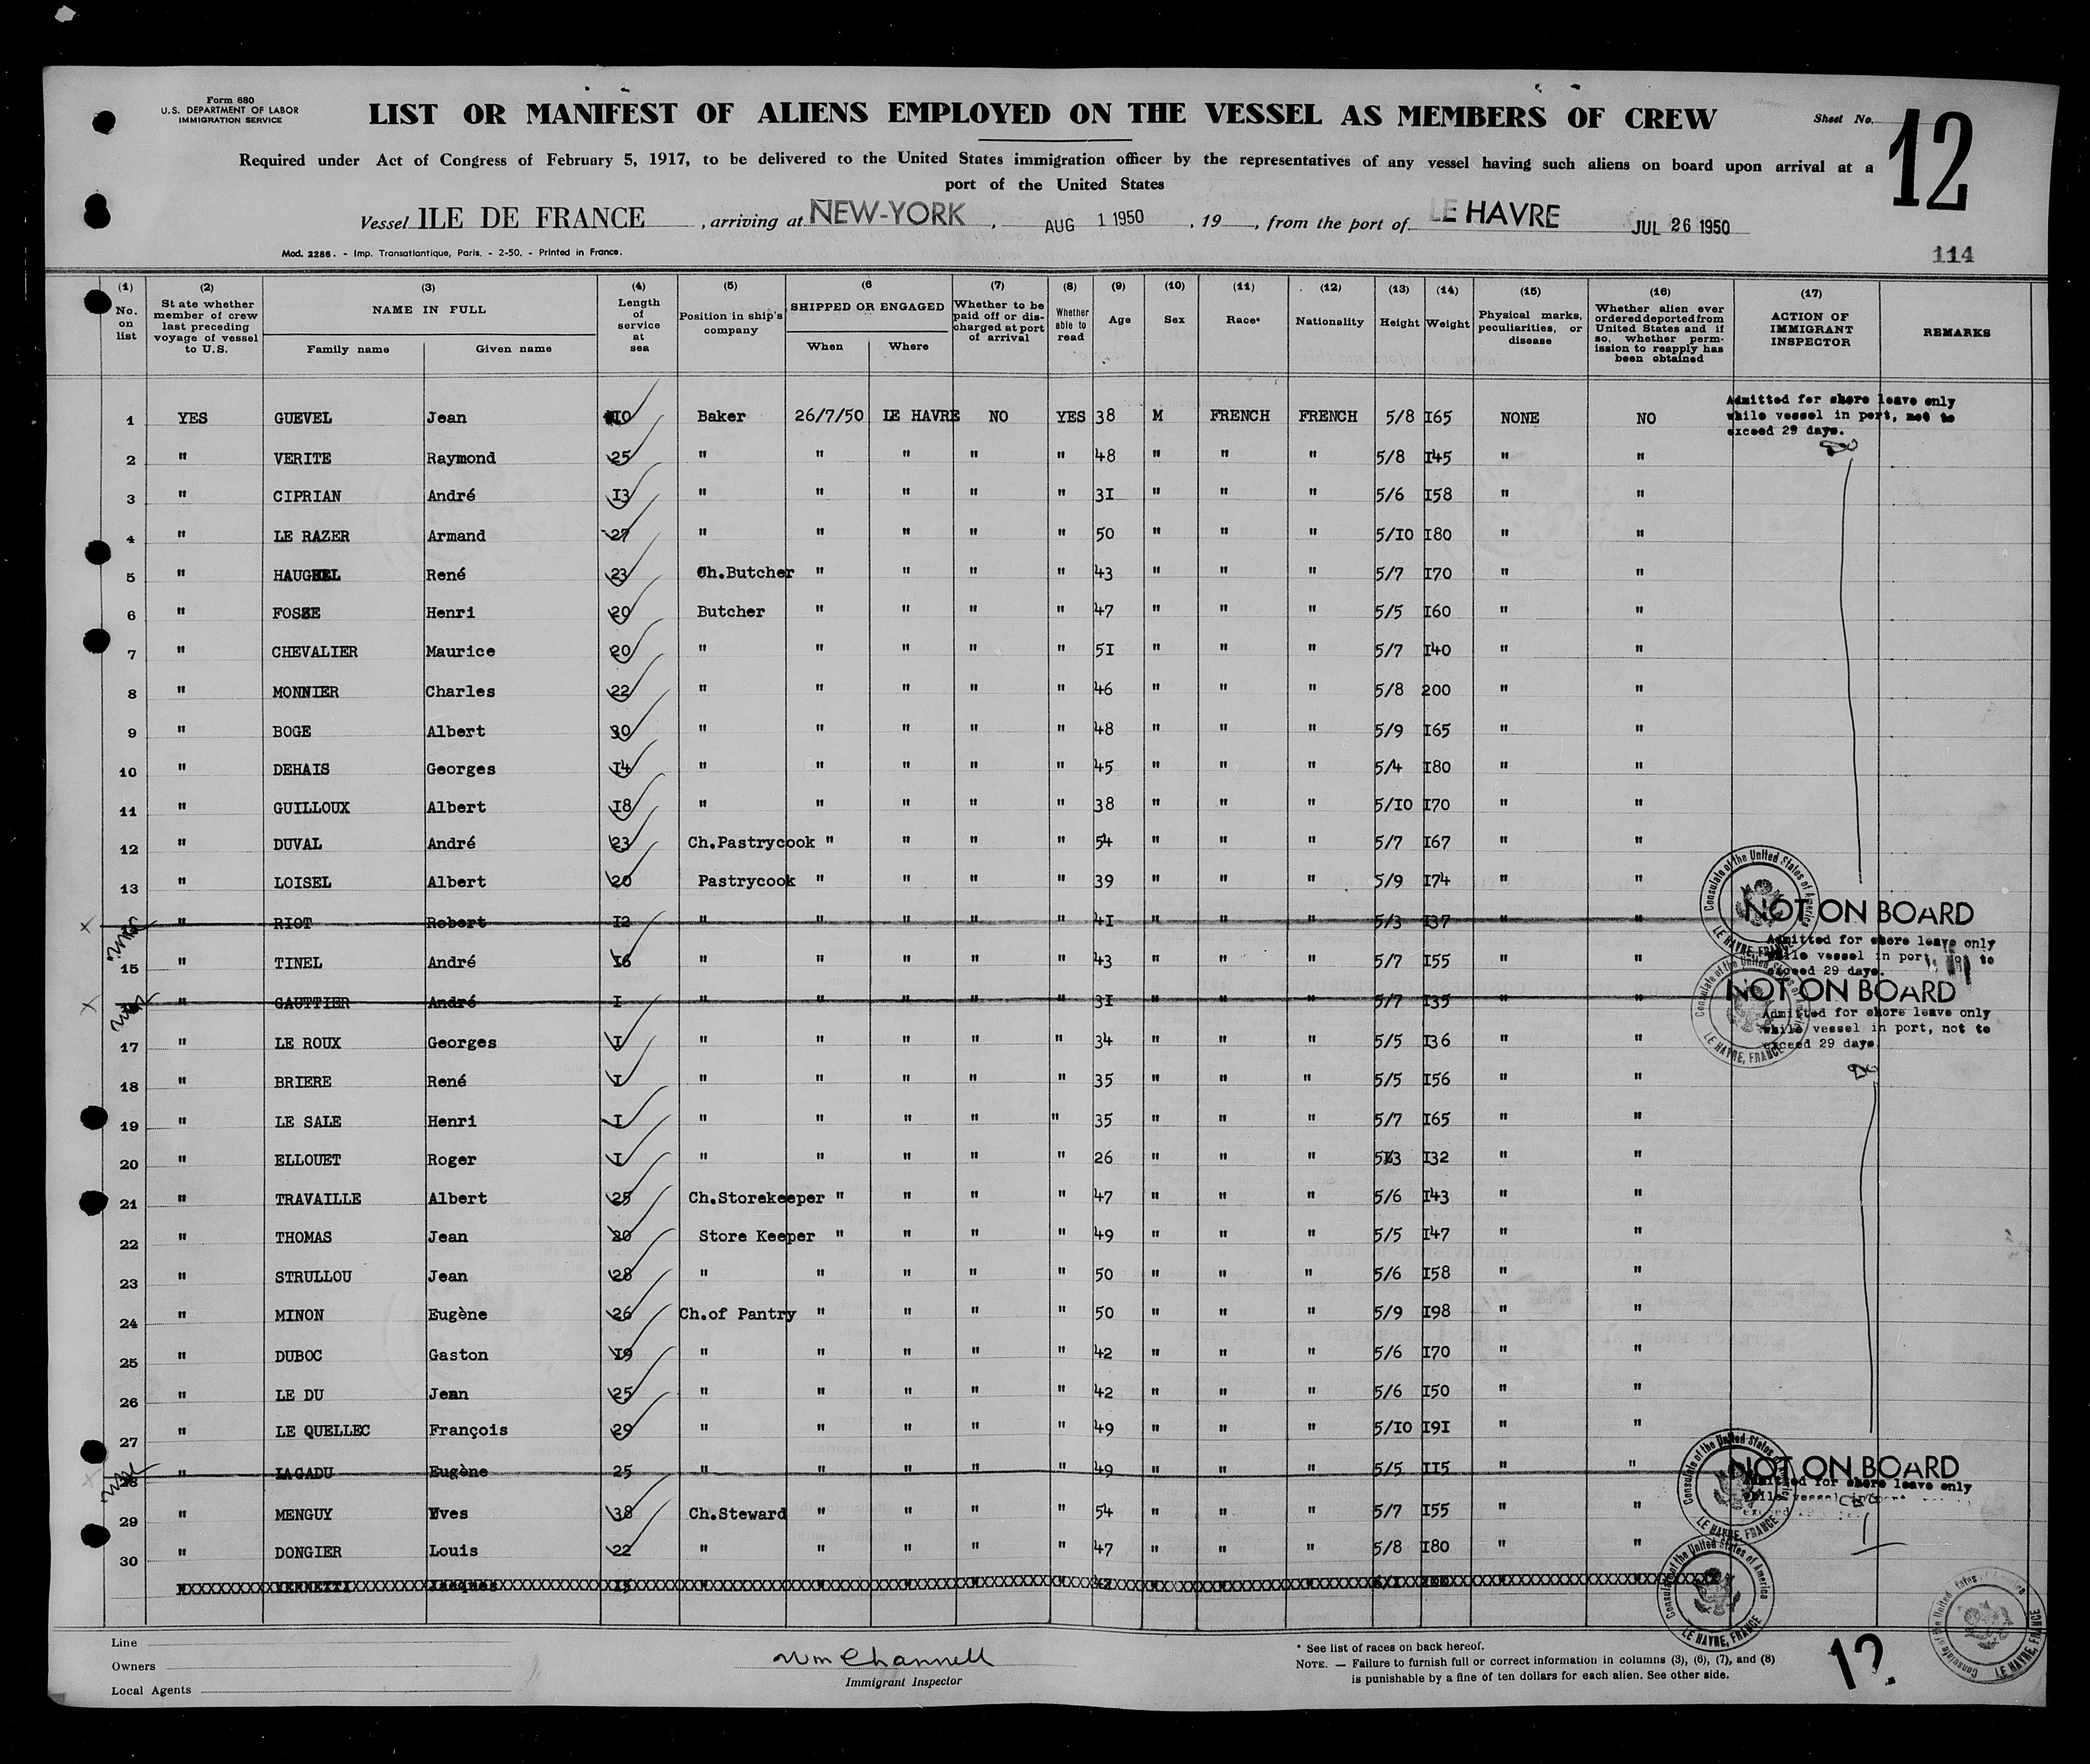 Form 680
U.S. DEPARTMENT OF LABOR
IMMIGRATION SERVICE
LIST OR MANIFEST OF ALIENS EMPLOYED ON THE VESSEL AS MEMBERS OF CREW
Sheet No. 12
Required under Act of Congress of February 5, 1917, to be delivered to the United States immigration officer by the representatives of any vessel having such aliens on board upon arrival at a
port of the United States
Vessel ILE DE FRANCE , arriving at NEW-YORK , AUG 1 1950 , 19 , from the port of LE HAVRE JUL 26 1950
Mod. 2286. - Imp. Transatlantique, Paris. - 2-50. - Printed in France.
114
(1) No. on list (2) State whether member of crew last preceding voyage of vessel to U.S. (3) NAME IN FULL Family name Given name (4) Length of service at sea (5) Position in ship's company (6 SHIPPED OR ENGAGED When Where (7) Whether to be paid off or discharged at port of arrival (8) Whether able to read (9) Age (10) Sex (11) Race* (12) Nationality (13) Height (14) Weight (15) Physical marks, peculiarities, or disease (16) Whether alien ever ordered deported from United States and if so, whether permission to reapply has been obtained (17) ACTION OF IMMIGRANT INSPECTOR REMARKS
1 YES GUEVEL Jean 10 Baker 26/7/50 LE HAVRE NO YES 38 M FRENCH FRENCH 5/8 165 NONE NO Admitted for shore leave only while vessel in port, not to exceed 29 days.
2 " VERITE Raymond 25 " " " " " 48 " " " 5/8 145 " "
3 " CIPRIAN André 13 " " " " " 31 " " " 5/6 158 " "
4 " LE RAZER Armand 27 " " " " " 50 " " " 5/10 180 " "
5 " René 23 Ch.Butcher " " " " 43 " " " 5/7 170 " "
6 " FOSSE Henri 20 Butcher " " " " 47 " " " 5/5 160 " "
7 " CHEVALIER Maurice 20 " " " " " 51 " " " 5/7 140 " "
8 " MONNIER Charles 22 " " " " " 46 " " " 5/8 200 " "
9 " BOGE Albert 30 " " " " " 48 " " " 5/9 165 " "
10 " DEHAIS Georges 14 " " " " " 45 " " " 5/4 180 " "
11 " GUILLOUX Albert 18 " " " " " 38 " " " 5/10 170 " "
12 " DUVAL André 23 Ch.Pastrycook " " " " 54 " " " 5/7 167 " "
13 " LOISEL Albert 20 Pastrycook " " " " 39 " " " 5/9 174 " "
" RIOT Robert 12 " " " " " 41 " " " 5/3 137 " " NOT ON BOARD
15 " TINEL André 16 " " " " " 43 " " " 5/7 155 " " Admitted for shore leave only while vessel in port, not to exceed 29 days.
" GAUTTIER André 1 " " " " " 31 " " " 5/7 135 " " NOT ON BOARD
17 " LE ROUX Georges 1 " " " " " 34 " " " 5/5 136 " " Admitted for shore leave only while vessel in port, not to exceed 29 days
18 " BRIERE René 1 " " " " " 35 " " " 5/5 156 " "
19 " LE SALE Henri 1 " " " " " 35 " " " 5/7 165 " "
20 " ELLOUET Roger 1 " " " " " 26 " " " 5/3 132 " "
21 " TRAVAILLE Albert 25 Ch.Storekeeper " " " " 47 " " " 5/6 143 " "
22 " THOMAS Jean 20 Store Keeper " " " " 49 " " " 5/5 147 " "
23 " STRULLOU Jean 28 " " " " " 50 " " " 5/6 158 " "
24 " MINON Eugène 26 Ch.of Pantry " " " " 50 " " " 5/9 198 " "
25 " DUBOC Gaston 19 " " " " " 42 " " " 5/6 170 " "
26 " LE DU Jean 25 " " " " " 42 " " " 5/6 150 " "
27 " LE QUELLEC François 29 " " " " " 49 " " " 5/10 191 " "
28 " LAGADU Eugène 25 " " " " " 49 " " " 5/5 115 " " NOT ON BOARD
29 " MENGUY Yves 38 Ch.Steward " " " " 54 " " " 5/7 155 " " Admitted for shore leave only while vessel in
30 " DONGIER Louis 22 " " " " " 47 " " " 5/8 180 " "
Jacques 15
Consulate of the United States of America LE HAVRE, FRANCE
Consulate of the United States of America LE HAVRE, FRANCE
Consulate of the United States of America LE HAVRE, FRANCE
Consulate of the United States of America LE HAVRE, FRANCE
Consulate of the United States of America LE HAVRE, FRANCE
Line
Owners
Local Agents
Wm Channell
Immigrant Inspector
* See list of races on back hereof.
NOTE. — Failure to furnish full or correct information in columns (3), (6), (7), and (8)
is punishable by a fine of ten dollars for each alien. See other side.
12